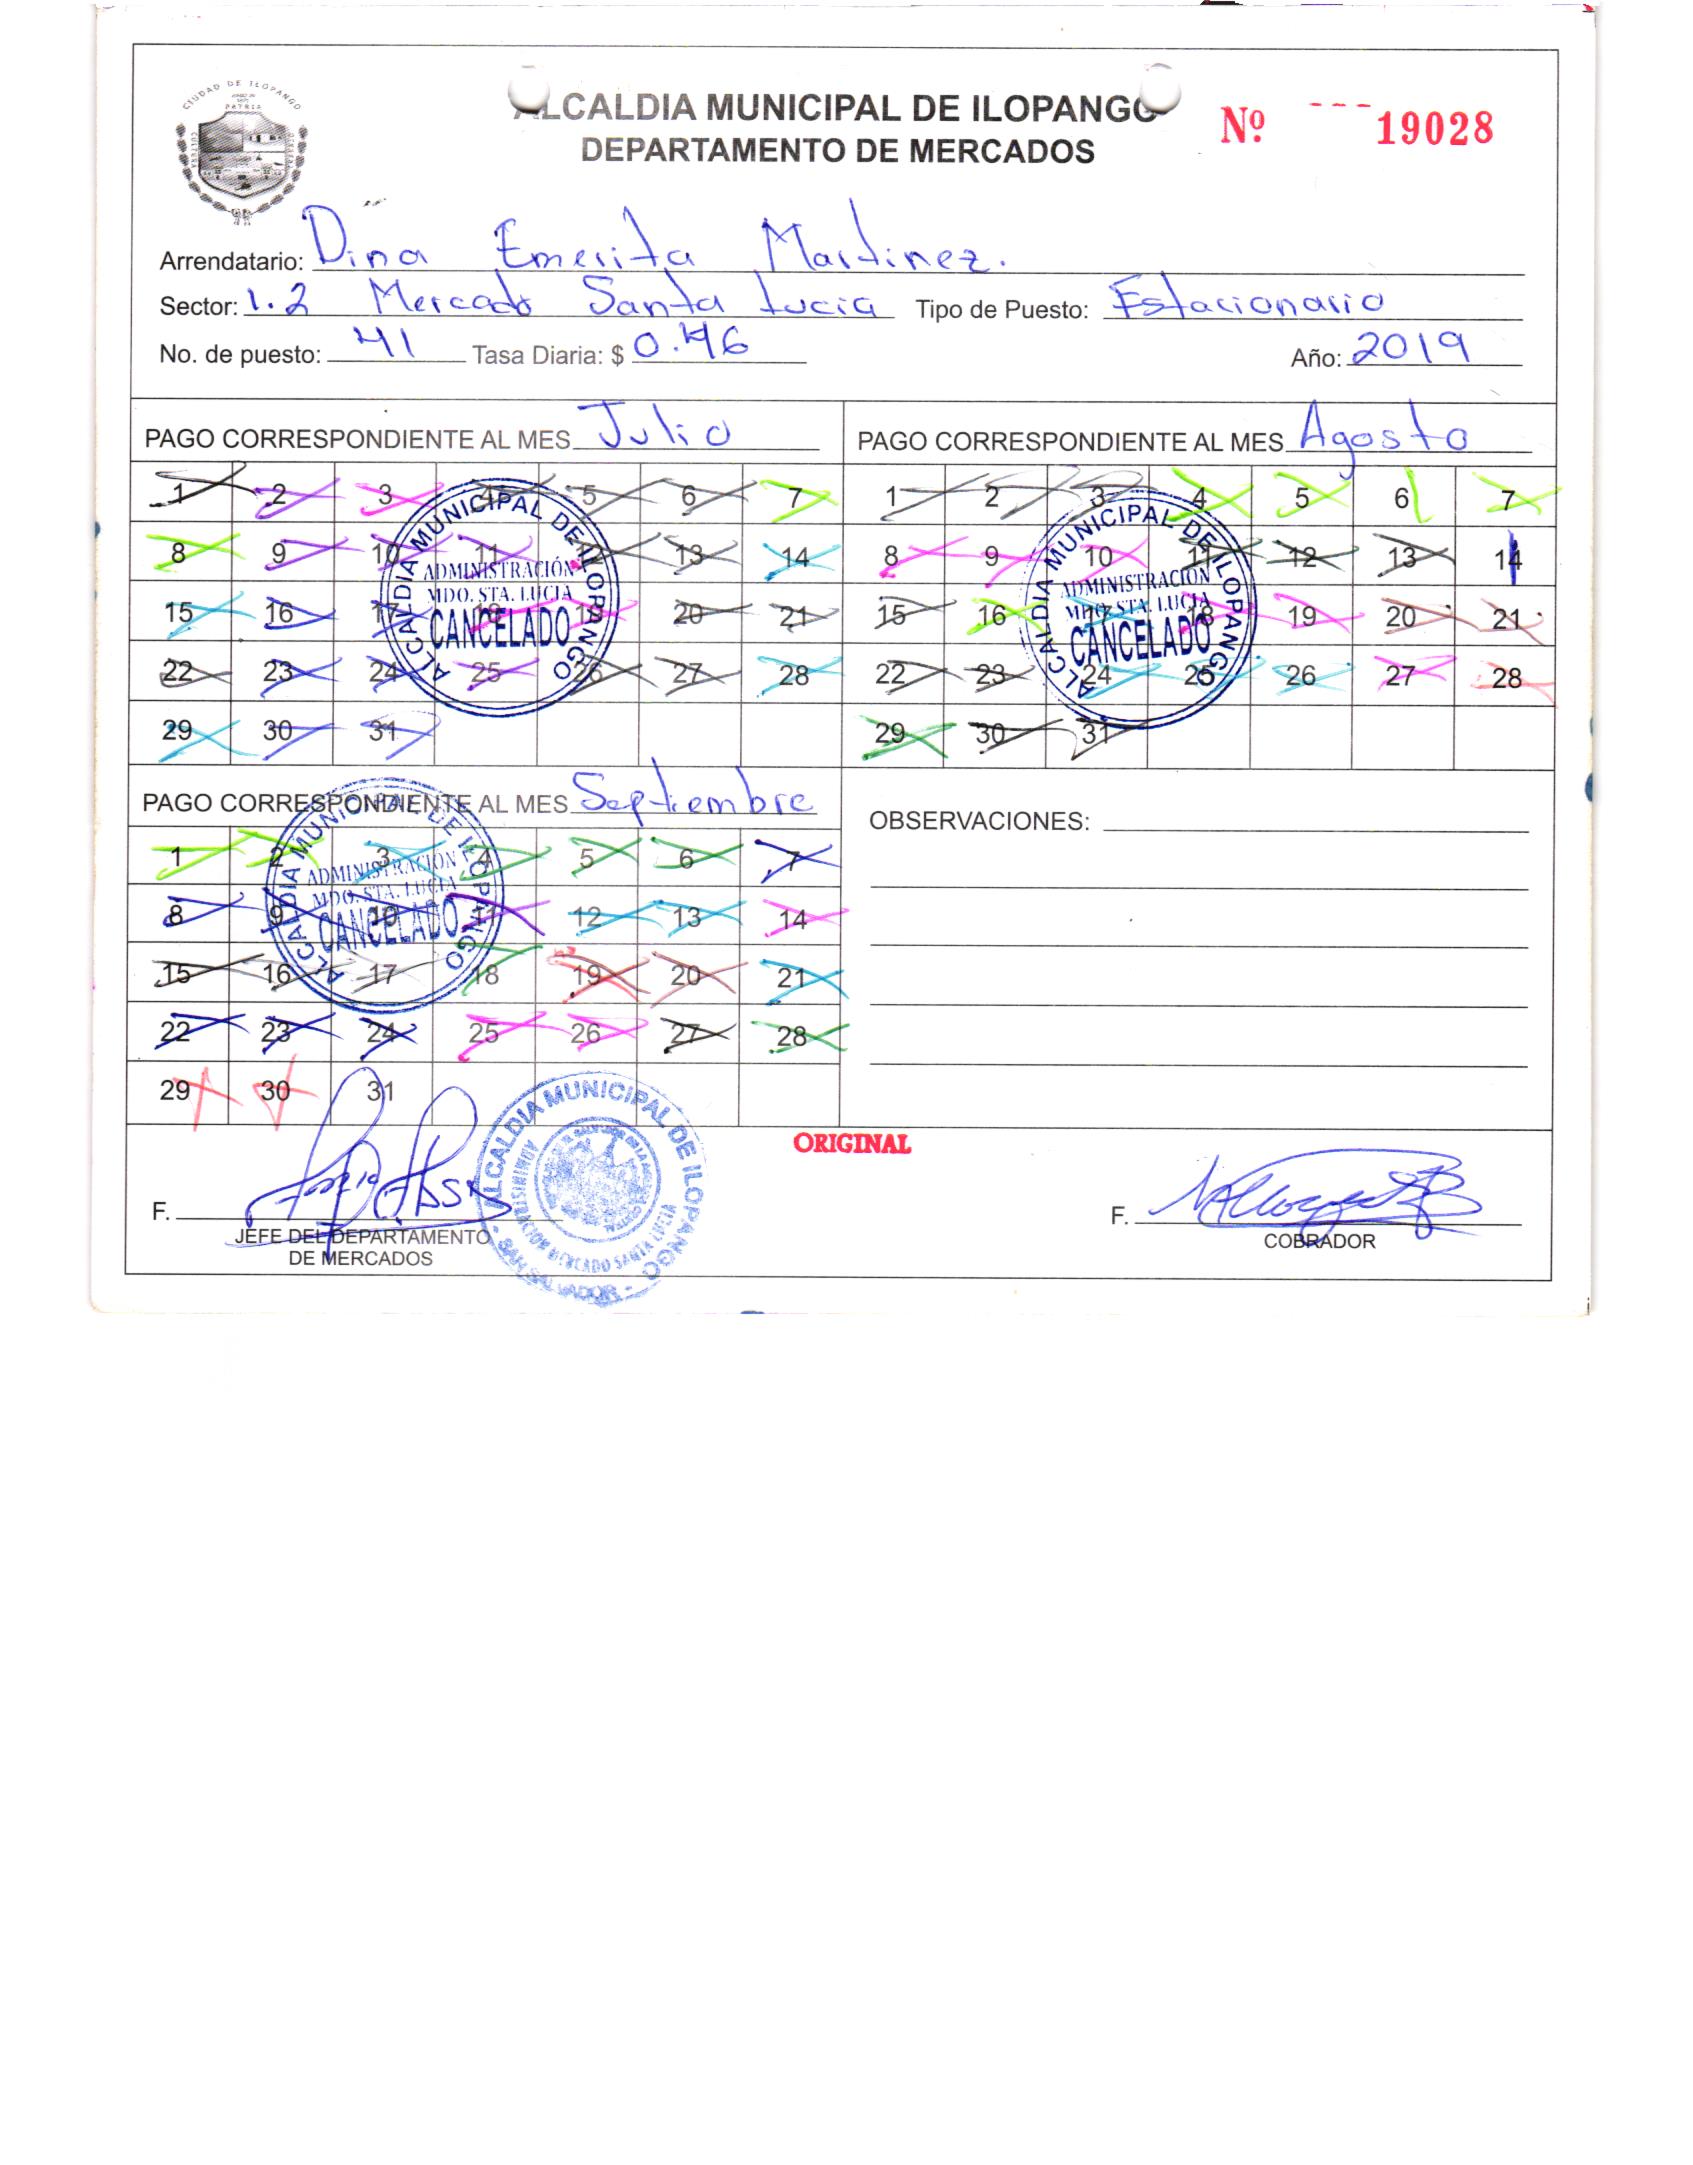 CIUDAD DE ILOPANGO
PATRIA
ALCALDIA MUNICIPAL DE ILOPANGO
DEPARTAMENTO DE MERCADOS
Nº 19028
Arrendatario: Dina Emerita Martinez.
Sector: 1.2 Mercado Santa Lucia Tipo de Puesto: Estacionario
No. de puesto: 41 Tasa Diaria: $ 0.46 Año: 2019
PAGO CORRESPONDIENTE AL MES Julio
1 2 3 4 5 6 7
8 9 10 11 12 13 14
15 16 17 18 19 20 21
22 23 24 25 26 27 28
29 30 31
ALCALDIA MUNICIPAL DE ILOPANGO
ADMINISTRACIÓN
MDO. STA. LUCIA
CANCELADO
PAGO CORRESPONDIENTE AL MES Agosto
1 2 3 4 5 6 7
8 9 10 11 12 13 14
15 16 17 18 19 20 21
22 23 24 25 26 27 28
29 30 31
ALCALDIA MUNICIPAL DE ILOPANGO
ADMINISTRACIÓN
MDO. STA. LUCIA
CANCELADO
PAGO CORRESPONDIENTE AL MES Septiembre
1 2 3 4 5 6 7
8 9 10 11 12 13 14
15 16 17 18 19 20 21
22 23 24 25 26 27 28
29 30 31
ALCALDIA MUNICIPAL DE ILOPANGO
ADMINISTRACIÓN
MDO. STA. LUCIA
CANCELADO
OBSERVACIONES:
ORIGINAL
F.
JEFE DEL DEPARTAMENTO
DE MERCADOS
ALCALDIA MUNICIPAL DE ILOPANGO
ADMINISTRACION MERCADO SANTA LUCIA
- SAN SALVADOR -
F.
COBRADOR